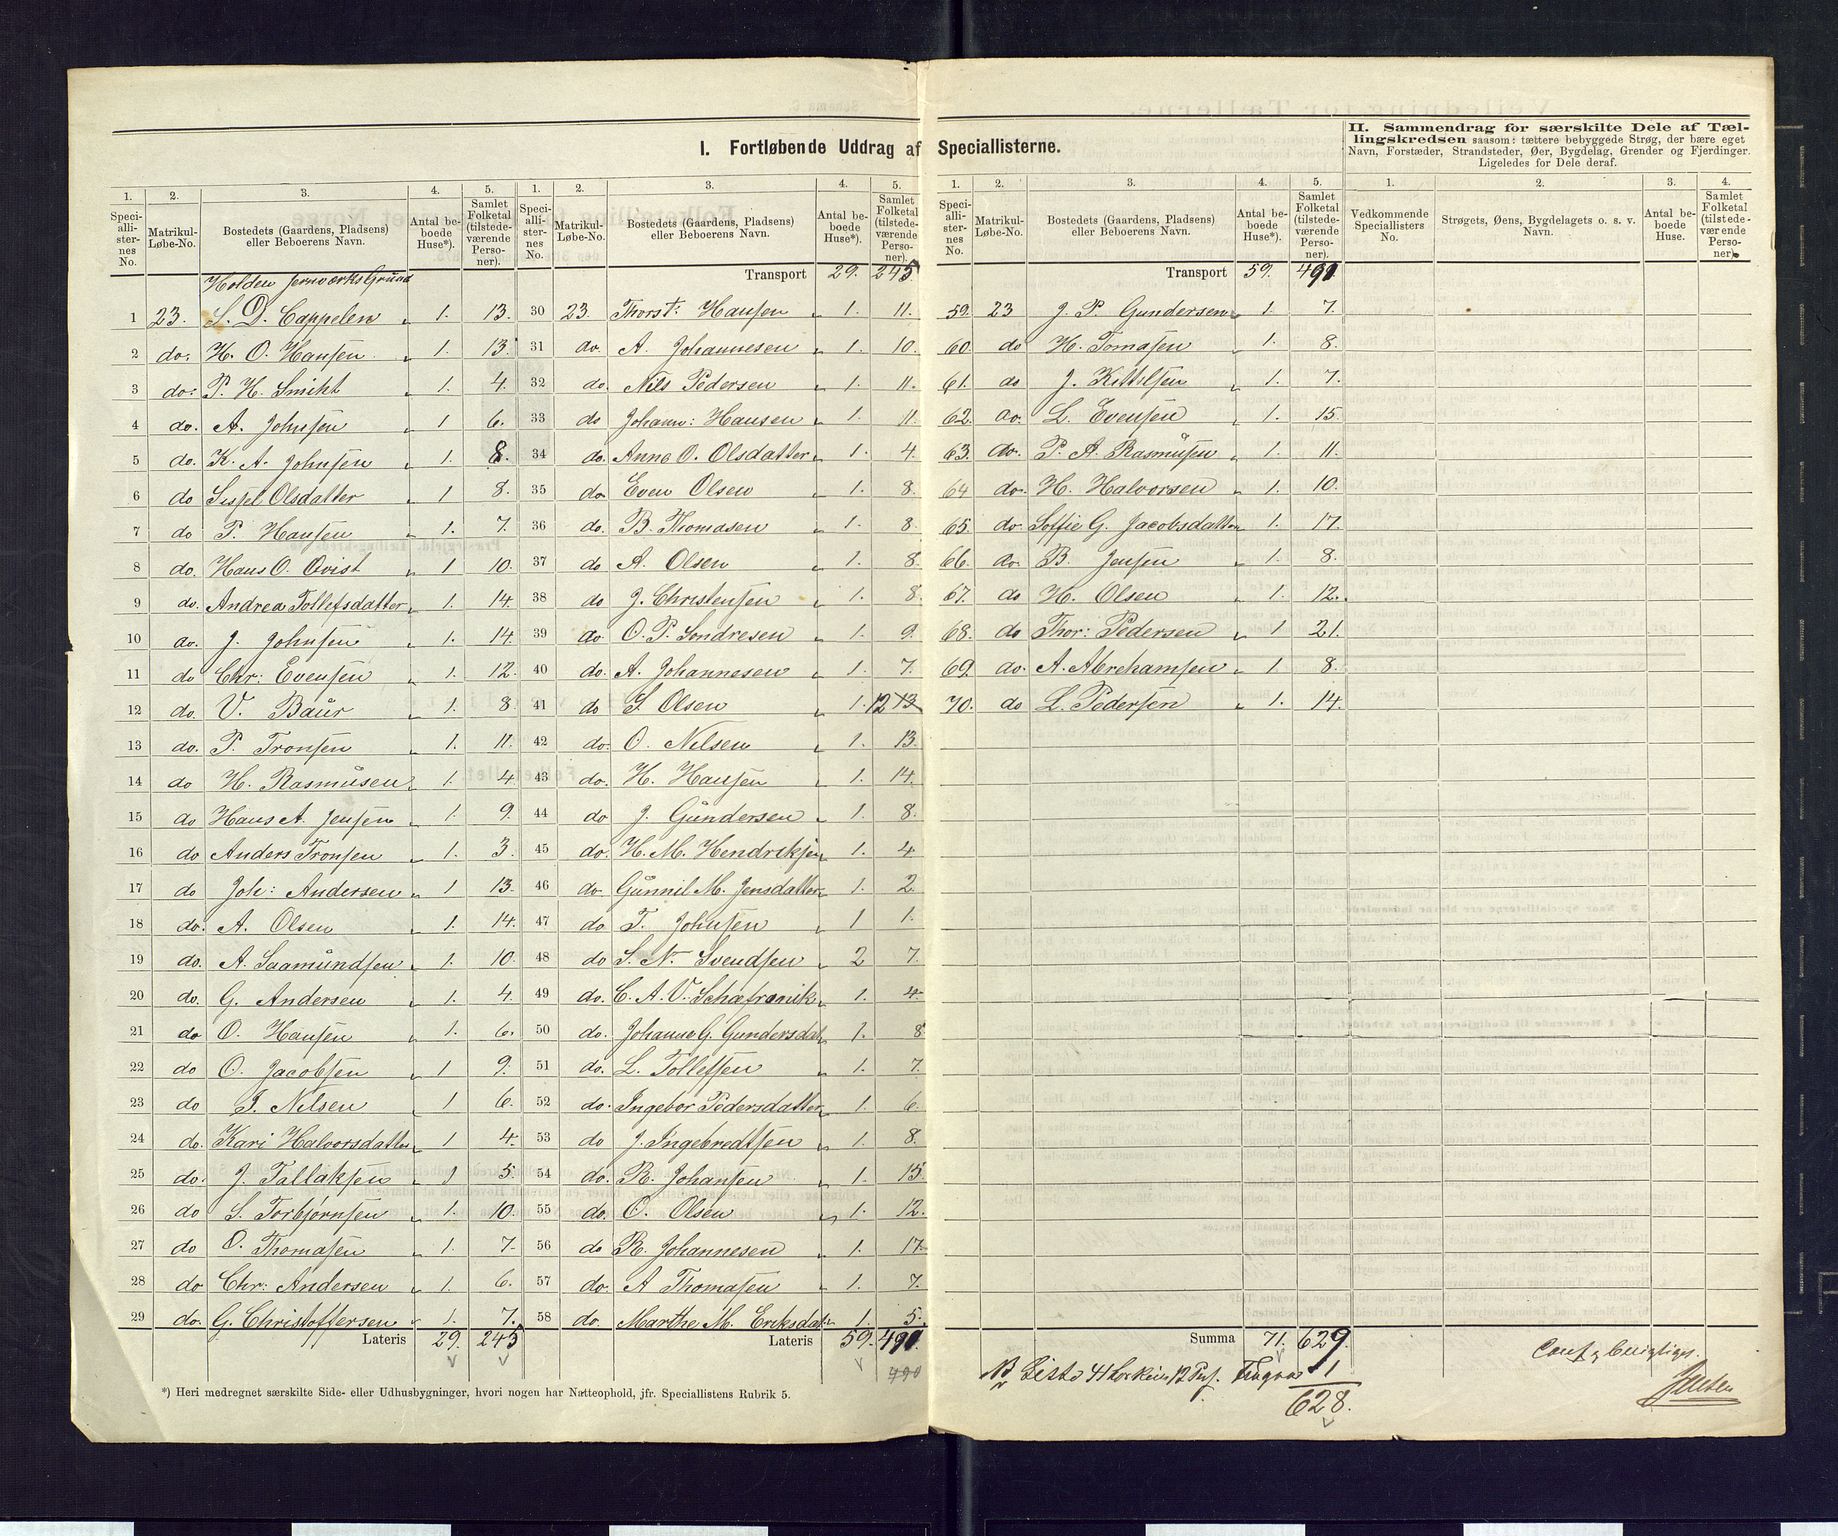 I. Fortløbende Uddrag af Speciallisterne.
II. Sammendrag for særskilte Dele af Tæl-
lingskredsen saasom: tættere bebyggede Strøg, der bære eget
Navn, Forstæder, Strandsteder, Øer, Bygdelag, Grender og Fjerdinger.
Ligeledes for Dele deraf.
1. 2. 3. 4. 5.
Speci-
allli-
ster-
nes
No.
Matrikul-
Løbe-No.
Bostedets (Gaardens, Pladsens)
eller Beboerens Navn.
Antal be-
boede
Huse*).
Samlet
Folketal
(tilstede-
værende
Perso-
ner).
Holden Jernværks Grund
1 23. S. D. Cappelen 1. 13.
2 do. H. O. Hansen 1. 13.
3 do. P. H. Smikt 1. 4.
4 do. A. Johnsen 1 6.
5 do. K. A. Johnsen 1. 8.
6 do Sissel Olsdatter 1 8.
7 do P. Hansen 1. 7.
8 do. Hans O. Qvist 1 10.
9 do. Andrea Tollefsdatter 1. 14.
10 do. J. Johnsen 1. 14.
11 do Chr: Evensen 1. 12.
12 do. V. Baur 1. 8.
13 do. P. Tronsen 1. 11.
14 do H. Rasmusen 1. 4
15 do Hans A. Jensen 1. 9.
16 do Anders Tronsen 1. 3.
17 do Joh: Andersen 1 13.
18 do. A. Olsen 1. 14.
19 do. A. Saamundsen 1. 10.
20 do. G. Andersen 1. 4.
21 do O. Hansen 1. 6.
22 do O. Jacobsen 1 9.
23 do J. Nilsen 1 6.
24 do. Kari Halvorsdatter 1 4.
25 do. J. Tallaksen 1 5.
26 do S. Torbjørnsen 1. 10.
27 do O. Thomasen 1. 7.
28 do Chr: Andersen 1. 6.
29 do. G. Christoffersen 1. 7.
Lateris 29. 245
*) Heri medregnet særskilte Side- eller Udhusbygninger, hvori nogen har Natteophold, jfr. Speciallistens Rubrik 5.
1. 2. 3. 4. 5.
Speci-
allli-
ster-
nes
No.
Matrikul-
Løbe-No.
Bostedets (Gaardens, Pladsens)
eller Beboerens Navn.
Antal be-
boede
Huse*).
Samlet
Folketal
(tilstede-
værende
Perso-
ner).
Transport 29. 245
30 23. Thorst: Hansen 1. 11.
31 do. A. Johannesen 1. 10.
32 do. Nils Pedersen 1. 11.
33 do Johann: Hansen 1. 11.
34 do. Anna O. Olsdatter 1. 4.
35 do Even Olsen 1. 8.
36 do. B. Thomasen 1. 8.
37 do A. Olsen 1. 8.
38 do J. Christensen 1. 8.
39 do O. P. Sondresen 1. 9.
40 do. A. Johannesen 1. 7.
41 do S. Olsen 1. 12 13
42 do. O. Nilsen 1. 13.
43 do. H. Hansen 1. 14.
44 do J. Gundersen 1. 8.
45 do. H. M. Hendriksen 1. 4
46 do Gunnil M. Jensdatter 1. 2.
47 do T. Johnsen 1 1.
48 do S. N. Svendsen 2 7.
49 do. C. A. V. Schafranik 1. 4.
50 do. Johanne G. Gundersdat 1. 8
51 do. L. Tollefsen 1. 7.
52 do. Ingebor Pedersdatter 1. 6.
53 do J. Ingebredtsen 1. 8.
54 do. R. Johansen 1. 15.
55 do. O. Olsen 1. 12.
56 do R. Johannesen 1. 17.
57 do. A Thomasen 1. 7.
58 do. Marthe M. Eriksdat 1. 5.
Lateris 59. 490
490
1. 2. 3. 4. 5.
Speci-
allli-
ster-
nes
No.
Matrikul-
Løbe-No.
Bostedets (Gaardens, Pladsens)
eller Beboerens Navn.
Antal be-
boede
Huse*).
Samlet
Folketal
(tilstede-
værende
Perso-
ner).
Transport 59. 490
59. 23 J. P. Gundersen 1. 7.
60. do H. Tomasen 1. 8.
61. do J. Kittilsen 1. 7.
62. do. L. Evensen 1. 15.
63. do. P. A. Rasmusen 1. 11.
64 do. H. Halvorsen 1. 10.
65. do. Soffie G. Jacobsdatter 1. 17.
66. do. B. Jensen 1. 8.
67. do H. Olsen 1. 12.
68. do Thor: Pedersen 1 21.
69. do. A. Abrehamsen 1. 8.
70. do L. Pedersen 1. 14.
Summa 71. 629.
NB Liste 41
1
628.
1. 2. 3. 4.
Vedkommende
Speciallisters
No.
Strøgets, Øens, Bygdelagets o. s. v.
Navn.
Antal be-
boede
Huse.
Samlet
Folketal
(tilstede-
værende
Perso-
ner).